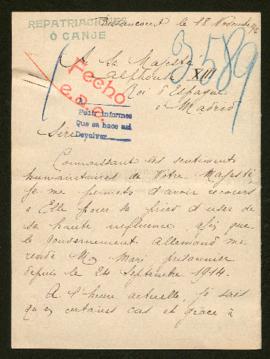 REPATRIACIONES
Ó CANJE
Billancourt le 18 Novembre
3589
A Sa Majesté
Alphonse XIII
Roi d'Espagne
à Madrid
Fecho
Pedir informes
Que se hace así
Devolver
Sire
Connaissant les sentiments
humanitaires de Votre Majesté,
je me permets d'avoir recours
à Elle pour la prier d'user de
sa haute influence afin que
le Gouvernement allemand me
rende Mon Mari prisonnier
depuis le 24 Septembre 1914.
A l'heure actuelle, je sais
qu'en certains cas et grâce à